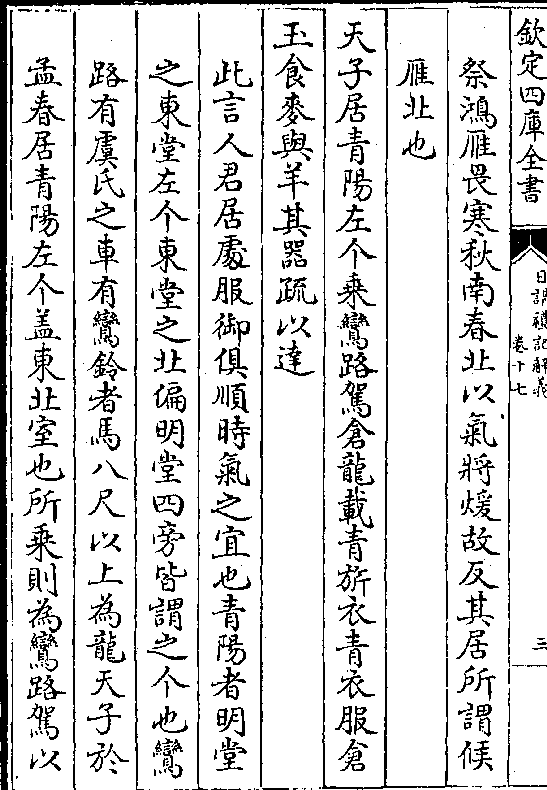 欽定四庫全書
日講禮記解義
卷十七
三
祭鴻雁畏寒秋南春北以氣將煖故反其居所謂候
雁北也
天子居青陽左个乘鸞路駕倉龍載青旂衣青衣服倉
玉食麥與羊其器疏以達
此言人君居處服御俱順時氣之宜也青陽者明堂
之東堂左个東堂之北偏明堂四旁皆謂之个也鸞
路有虞氏之車有鸞鈴者馬八尺以上為龍天子於
孟春居青陽左个盖東北室也所乘則為鸞路駕以